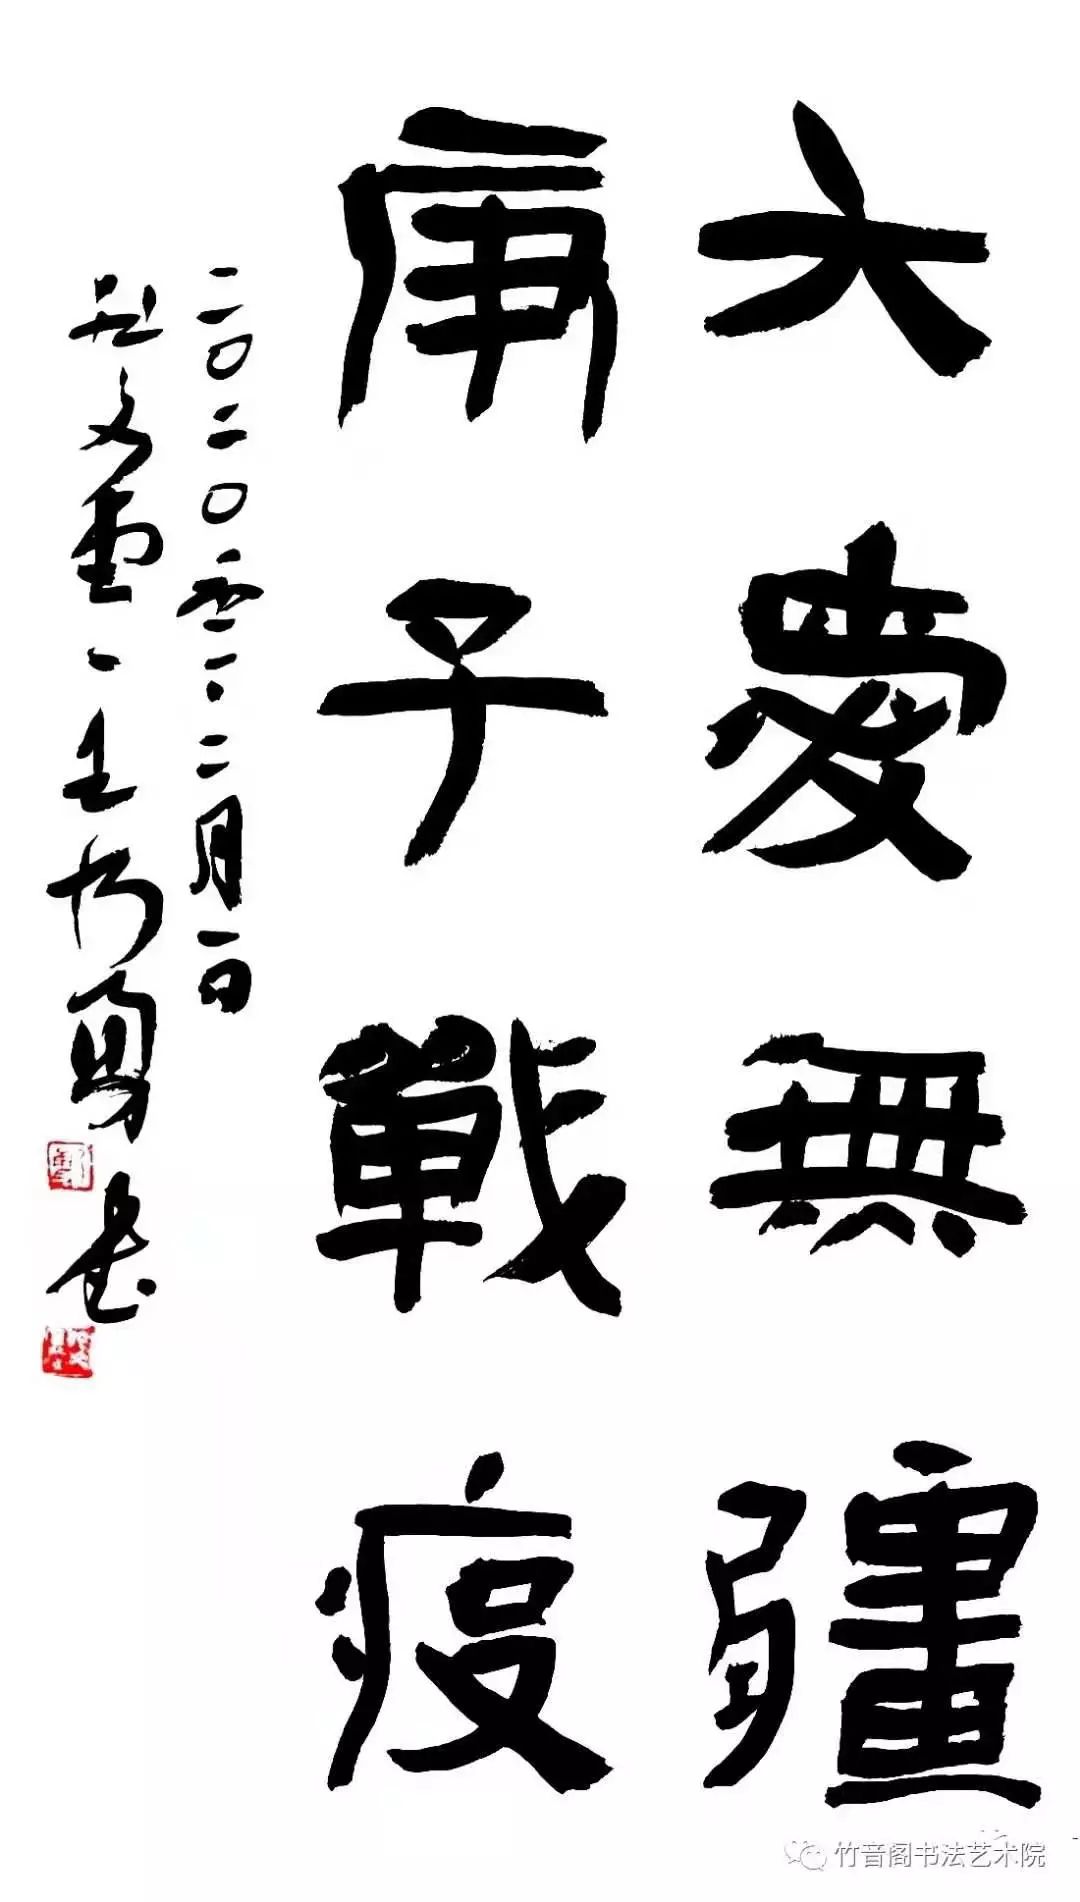 大愛無疆
庚子戰疫
二〇二〇二月
文堂王勇書
竹音阁书法艺术院